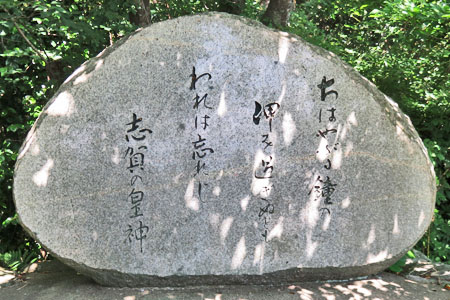 ちはやぶる鐘の
岬を過ぎぬとも
われは忘れじ
志賀の皇神